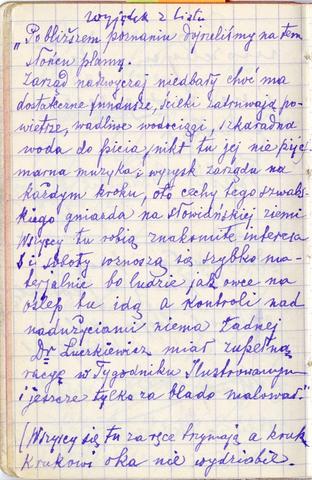 Wyjątek z Listu
"Po bliższem poznaniu dojrzeliśmy na tem
Słońcu plamy.
Zarząd nadzwyczaj niedbały choć ma
dostateczne fundusze, ścieki zatruwają po-
wietrze, wadliwe wodociągi, szkaradna
woda do picia, nikt tu jej nie pije,
marna muzyka, wyzysk zarządu na
każdym kroku, oto cechy tego szwab-
skiego gniazda na słowiańskiej ziemi
Wszyscy tu robią znakomite interesa
i się szybko ma-
terjalnie bo ludzie jak owce na
oślep tu idą a kontroli nad
nadużyciami niema żadnej
Dr miał zupełną
rację w Tygodniku Ilustrowanym
i jeszcze tylko za blado malował."
(Wszyscy się tu za ręce trzymają a kruk
krukowi oka nie wydziobie.